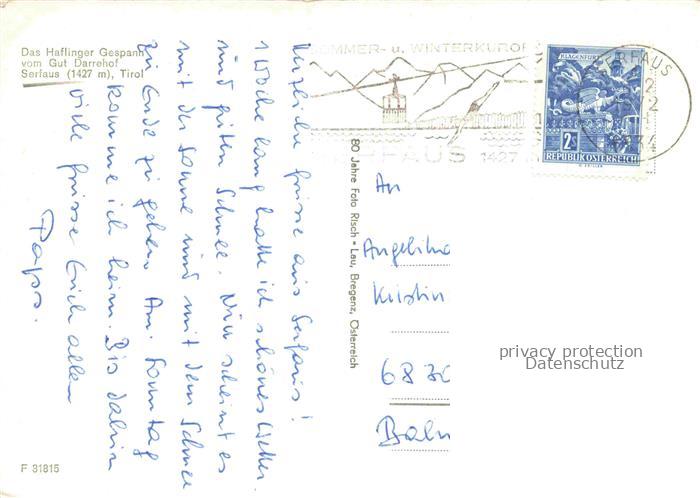 Das Haflinger Gespann
vom Gut Darrehof
Serfaus (1427 m), Tirol
Herzliche Grüsse aus Serfaus!
1 Woche lang hatte ich schönes Wetter
und guten Schnee. Nun scheint es
mit der Sonne und mit dem Schnee
zu Ende zu gehen. Am Sonntag
komme ich heim. Bis dahin
viele Grüsse Euch allen
Paps.
F 31815
80 Jahre Foto Risch • Lau, Bregenz, Österreich
SOMMER- u. WINTERKURORT
SERFAUS 1427
SERFAUS
KLAGENFURT
2 S
REPUBLIK ÖSTERREICH
An
Angelika
Kristin
68
privacy protection
Datenschutz